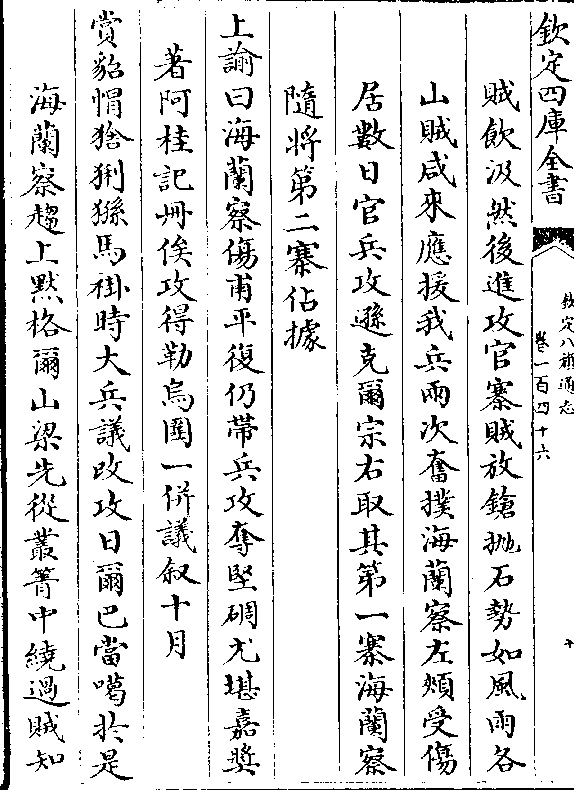 欽定四庫全書
欽定八旗通志
卷一百四十六
十
賊飲汲然後進攻官寨賊放鎗抛石勢如風雨各
山賊咸來應援我兵兩次奮撲海蘭察左頰受傷
居數日官兵攻遜克爾宗右取其第一寨海蘭察
隨將第二寨佔據
上諭曰海蘭察傷甫平復仍帶兵攻奪堅碉尤堪嘉奬
著阿桂記册俟攻得勒烏圍一併議叙十月
賞貂帽猞猁猻馬褂時大兵議改攻日爾巴當噶於是
海蘭察趨上默格爾山梁先從叢箐中繞過賊知